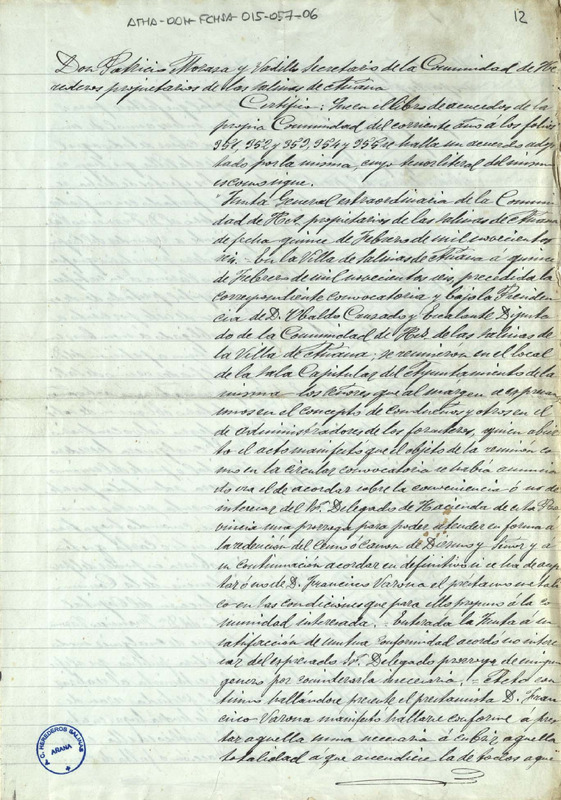 ATHA-DOH-FCHSA-015-057-06
12
Don Patricio Moraza y Vadillo Secretario de la Comunidad de He-
rederos propietarios de las Salinas de Añana
Certifico: Que en el libro de acuerdos de la
propia Comunidad del corriente año á los folios
351, 352 y 353, 354 y 355 se halla un acuerdo adop-
tado por la misma, cuyo tenor literal del mismo
es como sigue.
"Junta General extraordinaria de la Comuni-
dad de Hos. propietarios de las Salinas de Añana
de fecha quince de Febrero de mil novecientos
seis. - En la Villa de Salinas de Añana a quince
de Febrero de mil novecientos seis precedida la
correspondiente convocatoria y bajo la Presiden-
cia de D. Ubaldo Cruzado y Escalante Diputa-
do de la Comunidad de Hos. de las Salinas de
la Villa de Añana; se reunieron en el local
de la Sala Capitular del Ayuntamiento de la
misma los señores que al márgen se expresan
unos en el concepto de condueños y otros en el
de Administradores de los foranteros, quien abier-
to el acto manifestó que el objeto de la reunión co-
mo en la circular convocatoria se había anuncia-
do era el de acordar sobre la conveniencia ó no de
interesar del Sr. Delegado de Hacienda de esta Pro-
vincia una prorroga para poder atender en forma a
la redención del Censo ó Canon de Diezmos y
continuación acordar en definitiva si se ha de acep-
tar ó no de D. Francisco Varona el prestamo metali-
co en las condiciones que para ello propuso á la co-
munidad interesada. - Enterada la Junta a su
satisfacción de mutua conformidad acordó no intere-
sar del expresado Sr. Delegado prorroga de ningun
genero por considerarla innecesaria. - Acto con-
tinuo hallándose presente el prestamista D. Fran-
cisco Varona manifestó hallarse conforme a pres-
tar aquella suma necesaria á cubrir aquella
totalidad á que ascendiere la de todos aque
A. C. HEREDEROS SALINAS
AÑANA